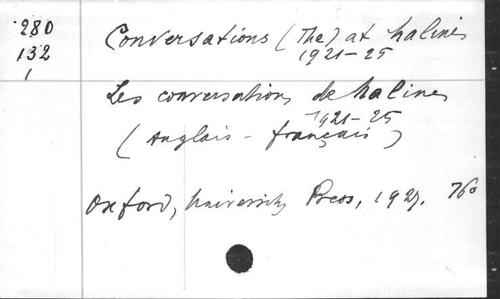 280
132
1
Conversations (The) at Malines
1921-25
Les conversations de Malines
1921-25
(Anglais - français)
Oxford, University Press, 1927. 76o